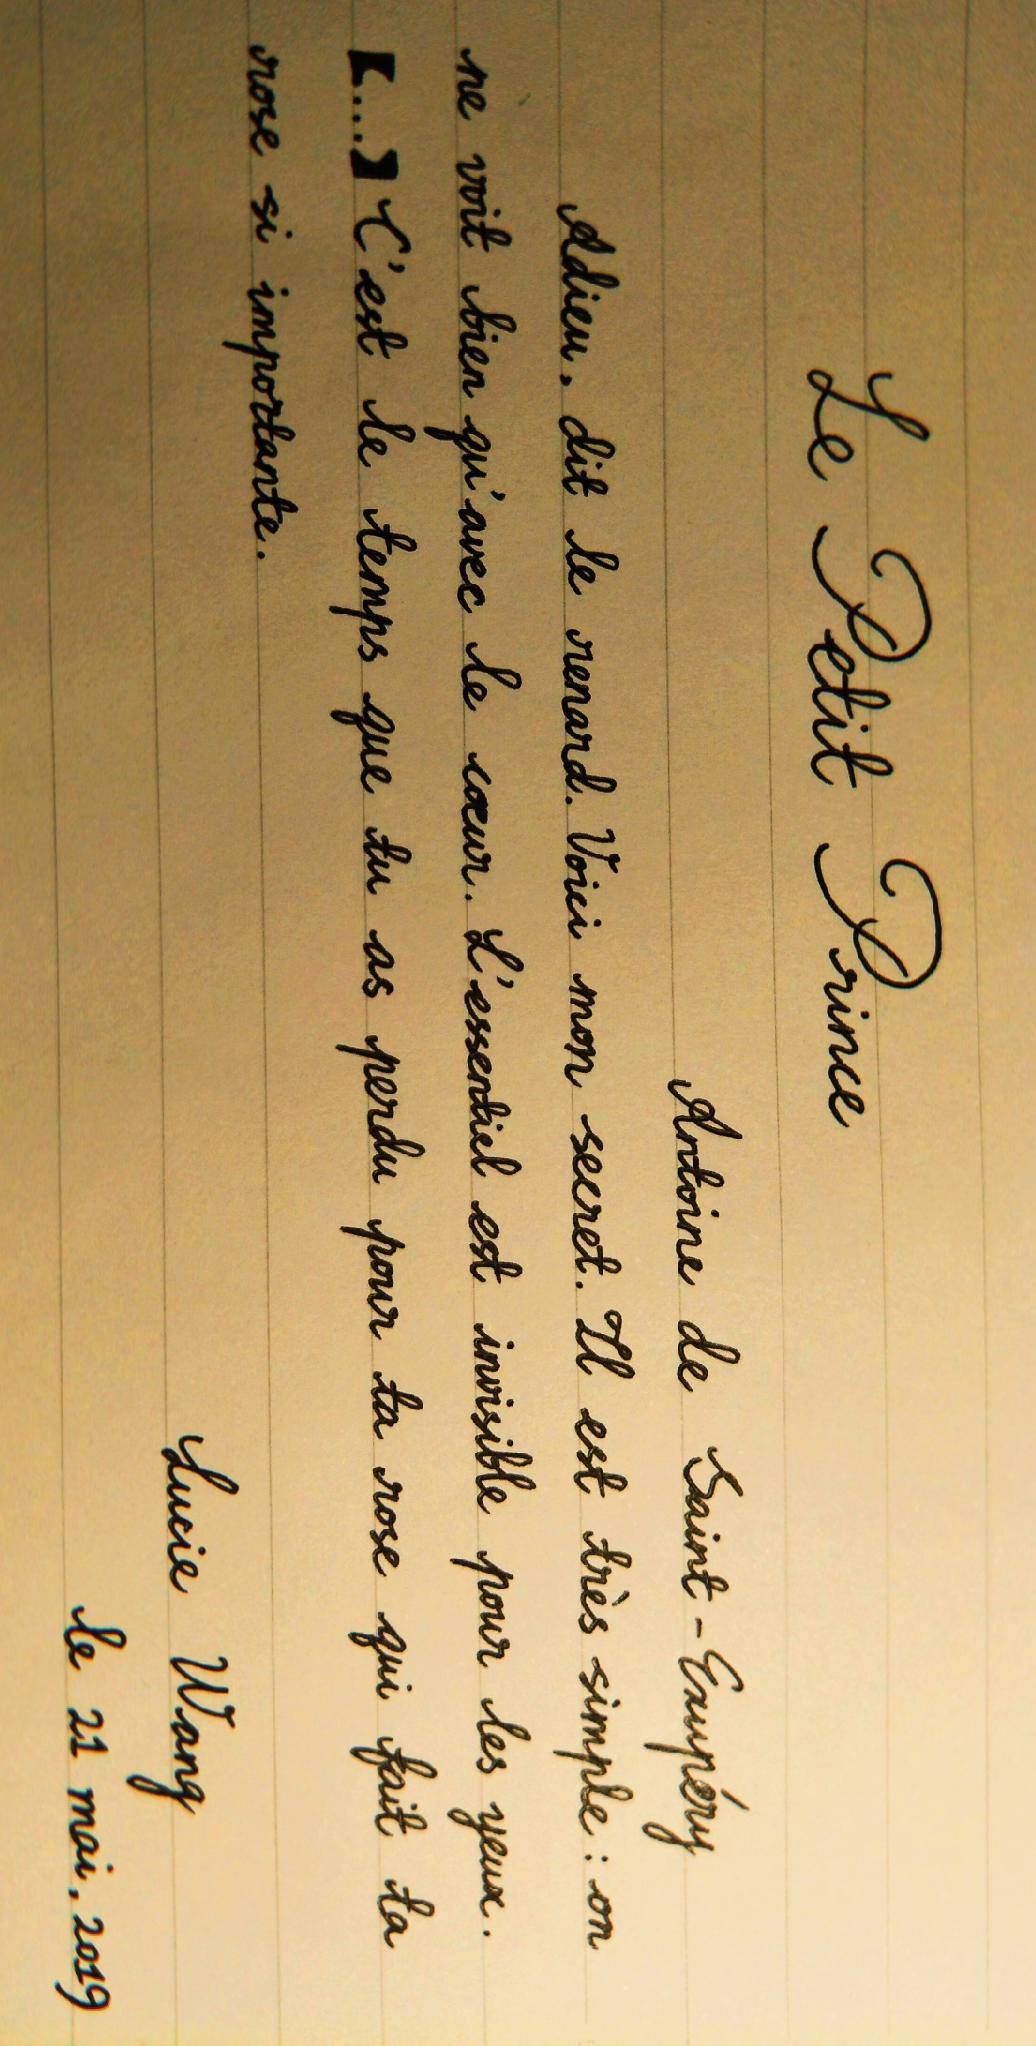 Le Petit Prince
Antoine de Saint-Exupéry
Adieu. dit le renard. Voici mon secret. Il est très simple : on
ne voit bien qu'avec le cœur. L'essentiel est invisible pour les yeux.
【...】C'est le temps que tu as perdu pour ta rose qui fait ta
rose si importante.
Lucie Wang
le 21 mai. 2019